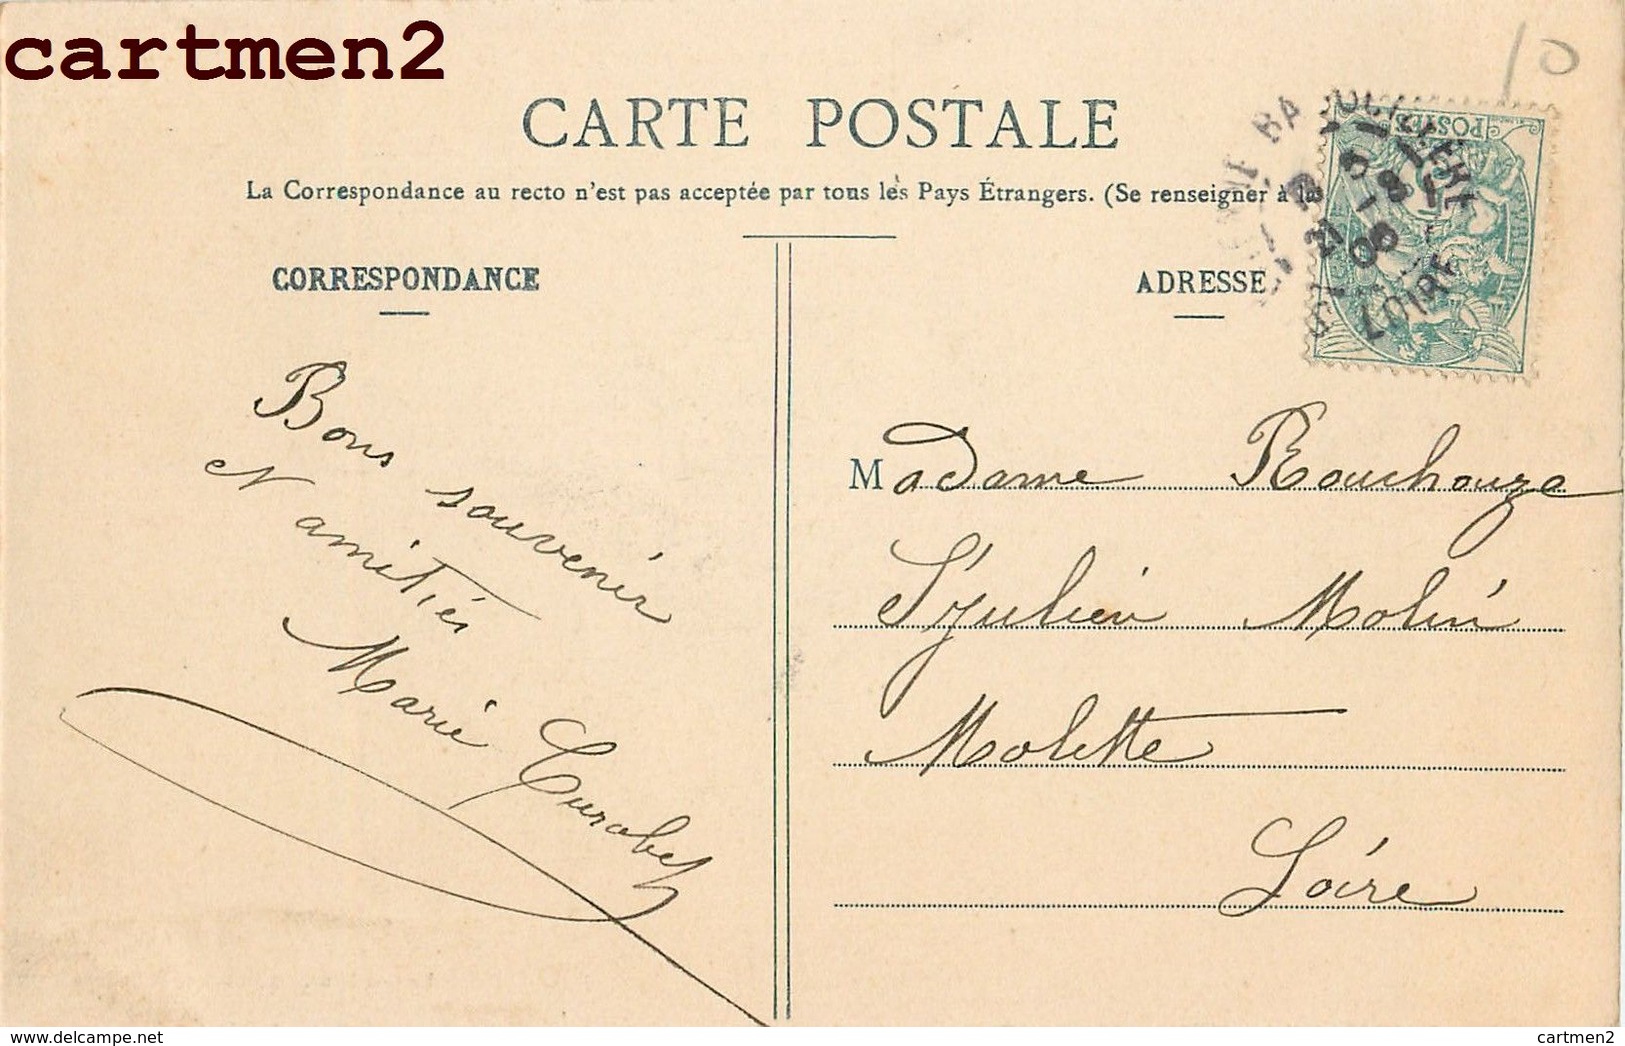 cartmen2
10
CARTE POSTALE
La Correspondance au recto n'est pas acceptée par tous les Pays Étrangers. (Se renseigner à la
CORRESPONDANCE
Bons souvenir
et amitiés
Marie
ADRESSE
POSTES
LOIRE
Madame Rouchouze
St Julien Molin
Molette
Loire
cartmen2